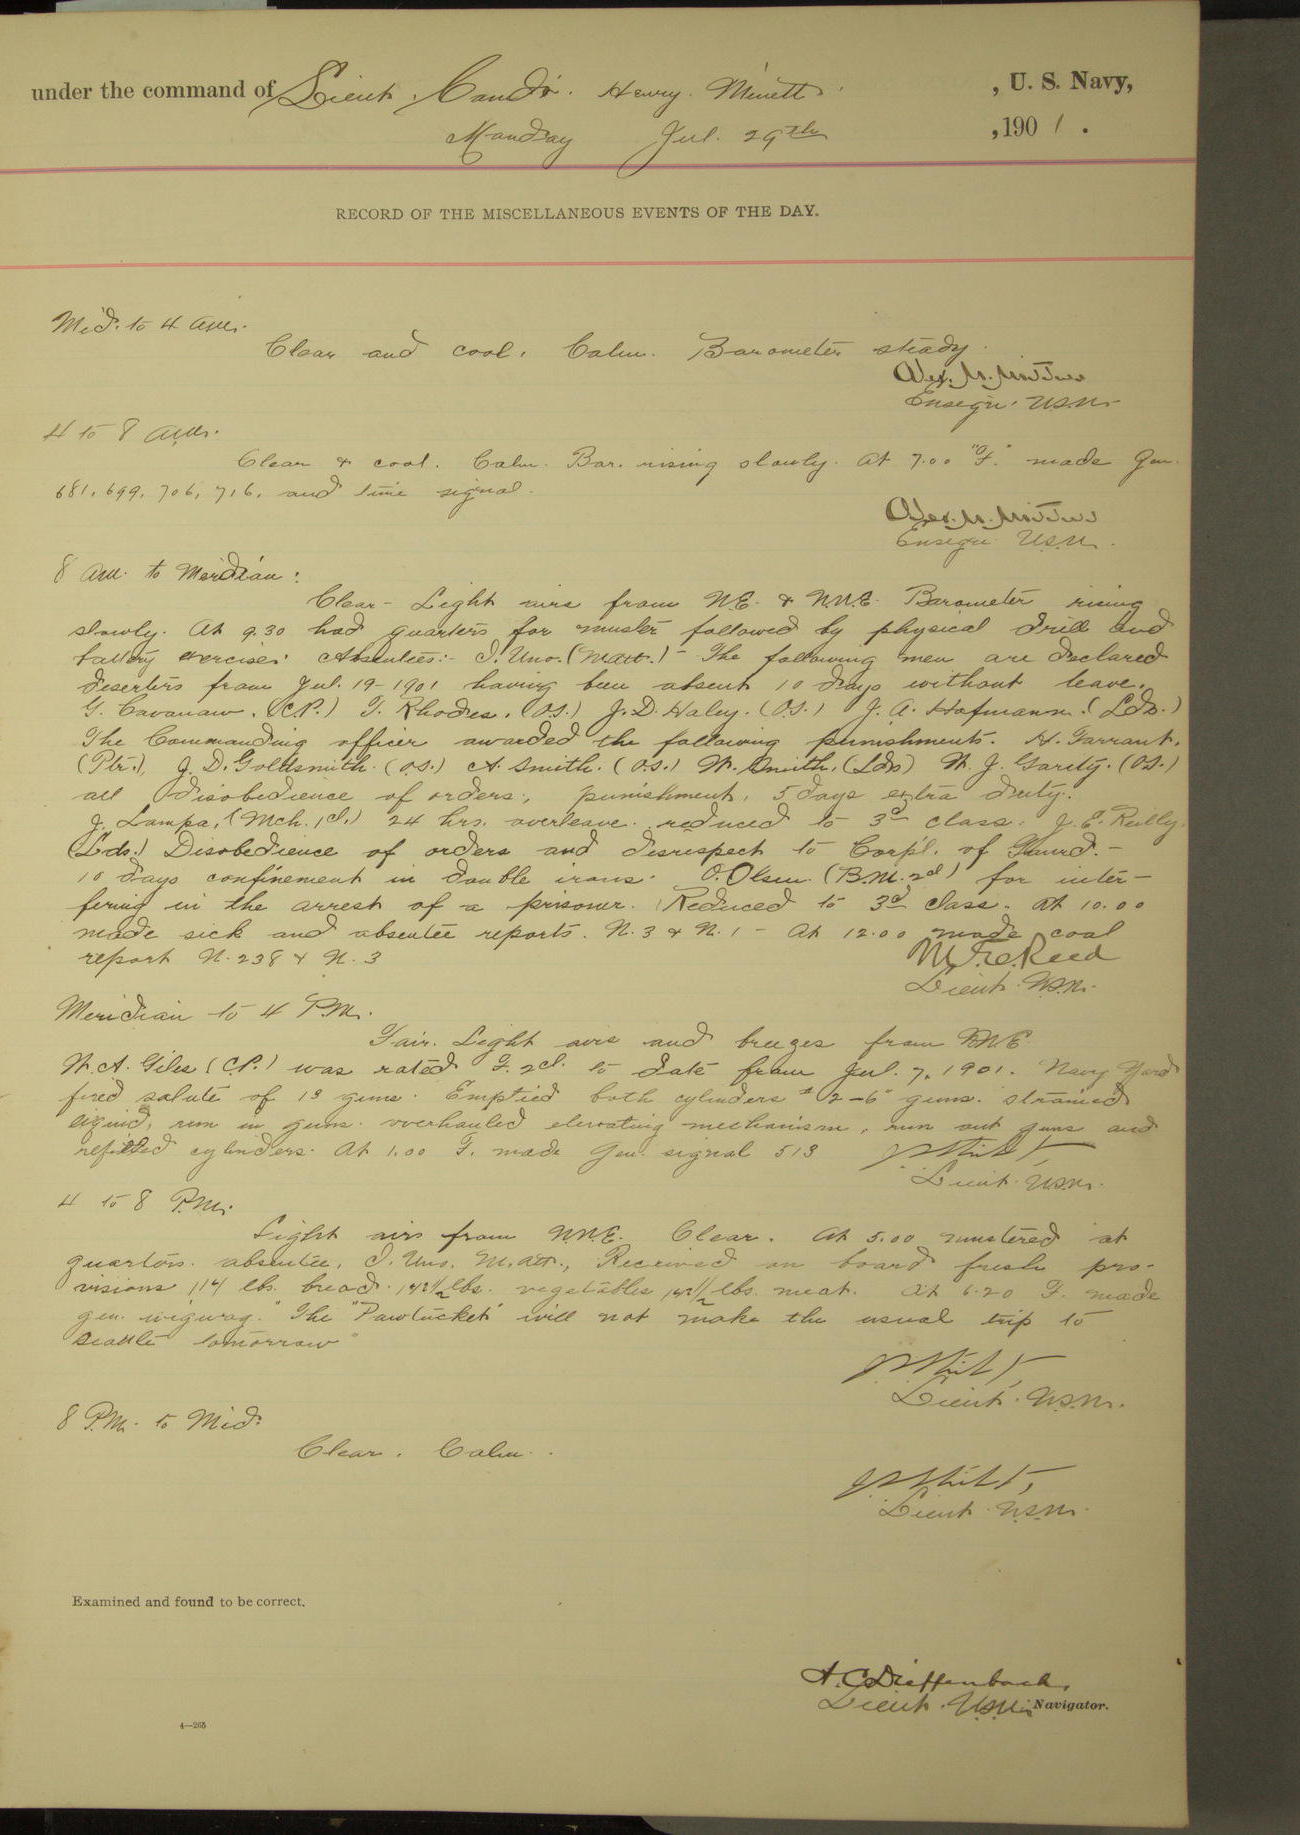 under the command of Lieut. Comdr. Henry Minett, U. S. Navy,
Monday Jul. 29th, 1901.
RECORD OF THE MISCELLANEOUS EVENTS OF THE DAY.
Mid. to 4 A.M.
Clear and cool. Calm. Barometer steady.
Alex. N.
Ensign. U.S.N.
4 to 8 A.M.
Clear & cool. Calm. Bar. rising slowly. At 7.00 "F." made Gen.
681, 699, 706, 716, and time signal.
Alex. N.
Ensign U.S.N.
8 A.M. to Meridian:
Clear - Light airs from N.E. & N.N.E. Barometer rising
slowly. At 9.30 had quarters for muster followed by physical drill and
battery exercise. Absentees:- I. Uno. (M.Att.) - The following men are declared
deserters from Jul. 19-1901 having been absent 10 days without leave.
G. Cavanaw. (C.P.) T. Rhodes. (O.S.) J. D. Haley. (O.S.) J. A. Hofmann. (Lds.)
The Commanding officer awarded the following punishments. H. Farrant.
(Ptr.), J. D. Goldsmith. (O.S.) A. Smith. (O.S.) W. Smith, (Lds) W. J. Garity. (O.S.)
all disobedience of orders; punishment, 5 days extra duty.
J. Lampa, (Mch. 1cl.) 24 hrs. overleave. reduced to 3d class. J. E. Reilly.
(Lds.) Disobedience of orders and disrespect to Corp'l. of Guard. -
10 days confinement in double irons. O. Olsen. (B.M. 2cl) for inter-
fering in the arrest of a prisoner. Reduced to 3d class. At 10.00
made sick and absentee reports. N. 3 & N. 1 - At 12.00 made coal
report N. 238 & N. 3
Reed
Lieut. U.S.N.
Meridian to 4 P.M.
Fair. Light airs and breezes from NNE
W. A. Giles (C.P.) was rated F. 2cl. to date from Jul. 7, 1901. Navy Yard
fired salute of 13 guns. Emptied both cylinders 2-6" guns. strained
liquid, run in guns. overhauled elevating mechanism, run out guns and
refilled cylinders. At 1.00 F. made Gen. signal 513
Lieut. U.S.N.
4 to 8 P.M.
Light airs from N.N.E. Clear. At 5.00 mustered at
quarters. absentee, I. Uno. M. Att., Received on board fresh pro-
visions 114 lbs. bread 142½ lbs. vegetables 142½ lbs. meat. At 6.20 F. made
gen. wigwag. "The "Pawtucket" will not make the usual trip to
Seattle tomorrow"
Lieut. U.S.N.
8 P.M. to Mid.
Clear. Calm.
Lieut. U.S.N.
Examined and found to be correct.
A. C. Dieffenbach,
Lieut. U.S.N. Navigator.
4—265